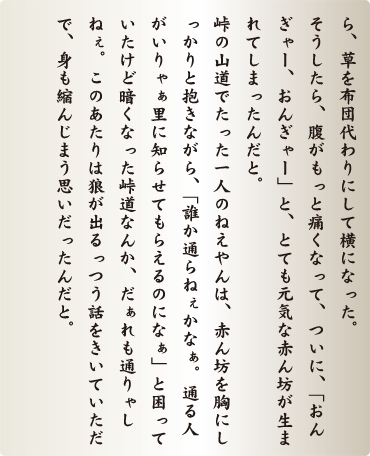 ら、草を布団代わりにして横になった。
そうしたら、腹がもっと痛くなって、ついに、「おん
ぎゃー、おんぎゃー」と、とても元気な赤ん坊が生ま
れてしまったんだと。
峠の山道でたった一人のねえやんは、赤ん坊を胸にし
っかりと抱きながら、「誰か通らねぇかなぁ。通る人
がいりゃぁ里に知らせてもらえるのになぁ」と困って
いたけど暗くなった峠道なんか、だぁれも通りゃし
ねぇ。このあたりは狼が出るっつう話をきいていただ
で、身も縮んじまう思いだったんだと。